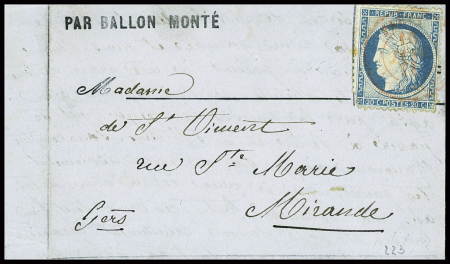 PAR BALLON MONTÉ
REPUB. FRANC.
20 C. POSTES 20 C.
Madame
de St Viment
rue Ste Marie
Gers Mirande
223